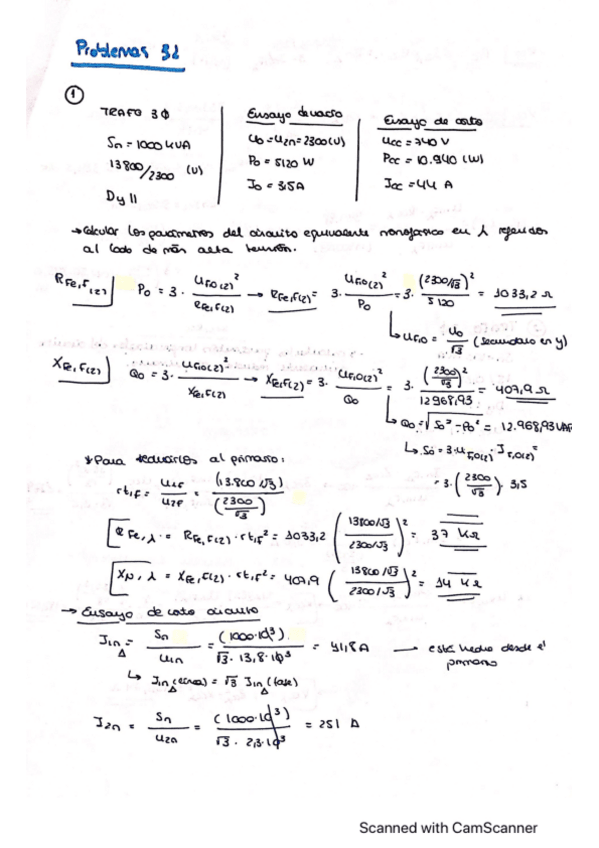 Problemas 3.2
①
TRAFO 3Φ
Sn = 1000 kVA
13800/2300 (V)
Dy 11
Ensayo de vacío
U0 = U2n = 2300 (V)
P0 = 5120 W
I0 = 3,15 A
Ensayo de corto
Ucc = 740 V
Pcc = 10.940 (W)
Icc = 44 A
→ Calcular los parámetros del circuito equivalente monofásico en λ referidos
al lado de más alta tensión.
RFe,f(2)] P0 = 3 · Uf0(2)² / RFe,f(2) → RFe,f(2) = 3 · Uf0(2)² / P0 = 3 · (2300/√3)² / 5120 = 1033,2 Ω
↳ Uf,0 = U0/√3 (secundario en y)
XFe,f(2)] Q0 = 3 · Uf0(2)² / XFe,f(2) → XFe,f(2) = 3 · Uf,0(2)² / Q0 = 3 · (2300/√3)² / 12968,93 = 407,9 Ω
↳ Q0 = √S0² - P0² = 12.968,93 VAr
↳ S0 = 3 · Uf,0(2) · If,0(2) =
= 3 · (2300/√3) · 3,15
* Para reducirlos al primario:
rt,f = U1f/U2f = (13.800/√3) / (2300/√3)
[RFe,λ = RFe,f(2) · rt,f² = 1033,2 (13800/√3 / 2300/√3)² = 37 KΩ
[Xμ,λ = XFe,f(2) · rt,f² = 407,9 (13800/√3 / 2300/√3)² = 14 KΩ
→ Ensayo de corto circuito
I1n Δ = Sn/U1n = (1000·10³) / √3 · 13,8 · 10³ = 41,8 A → está hecho desde el
primario
↳ I1n Δ (línea) = √3 I1n Δ (fase)
I2n = Sn/U2n = (1000·10³) / √3 · 2,3·10³ = 251 A
Scanned with CamScanner